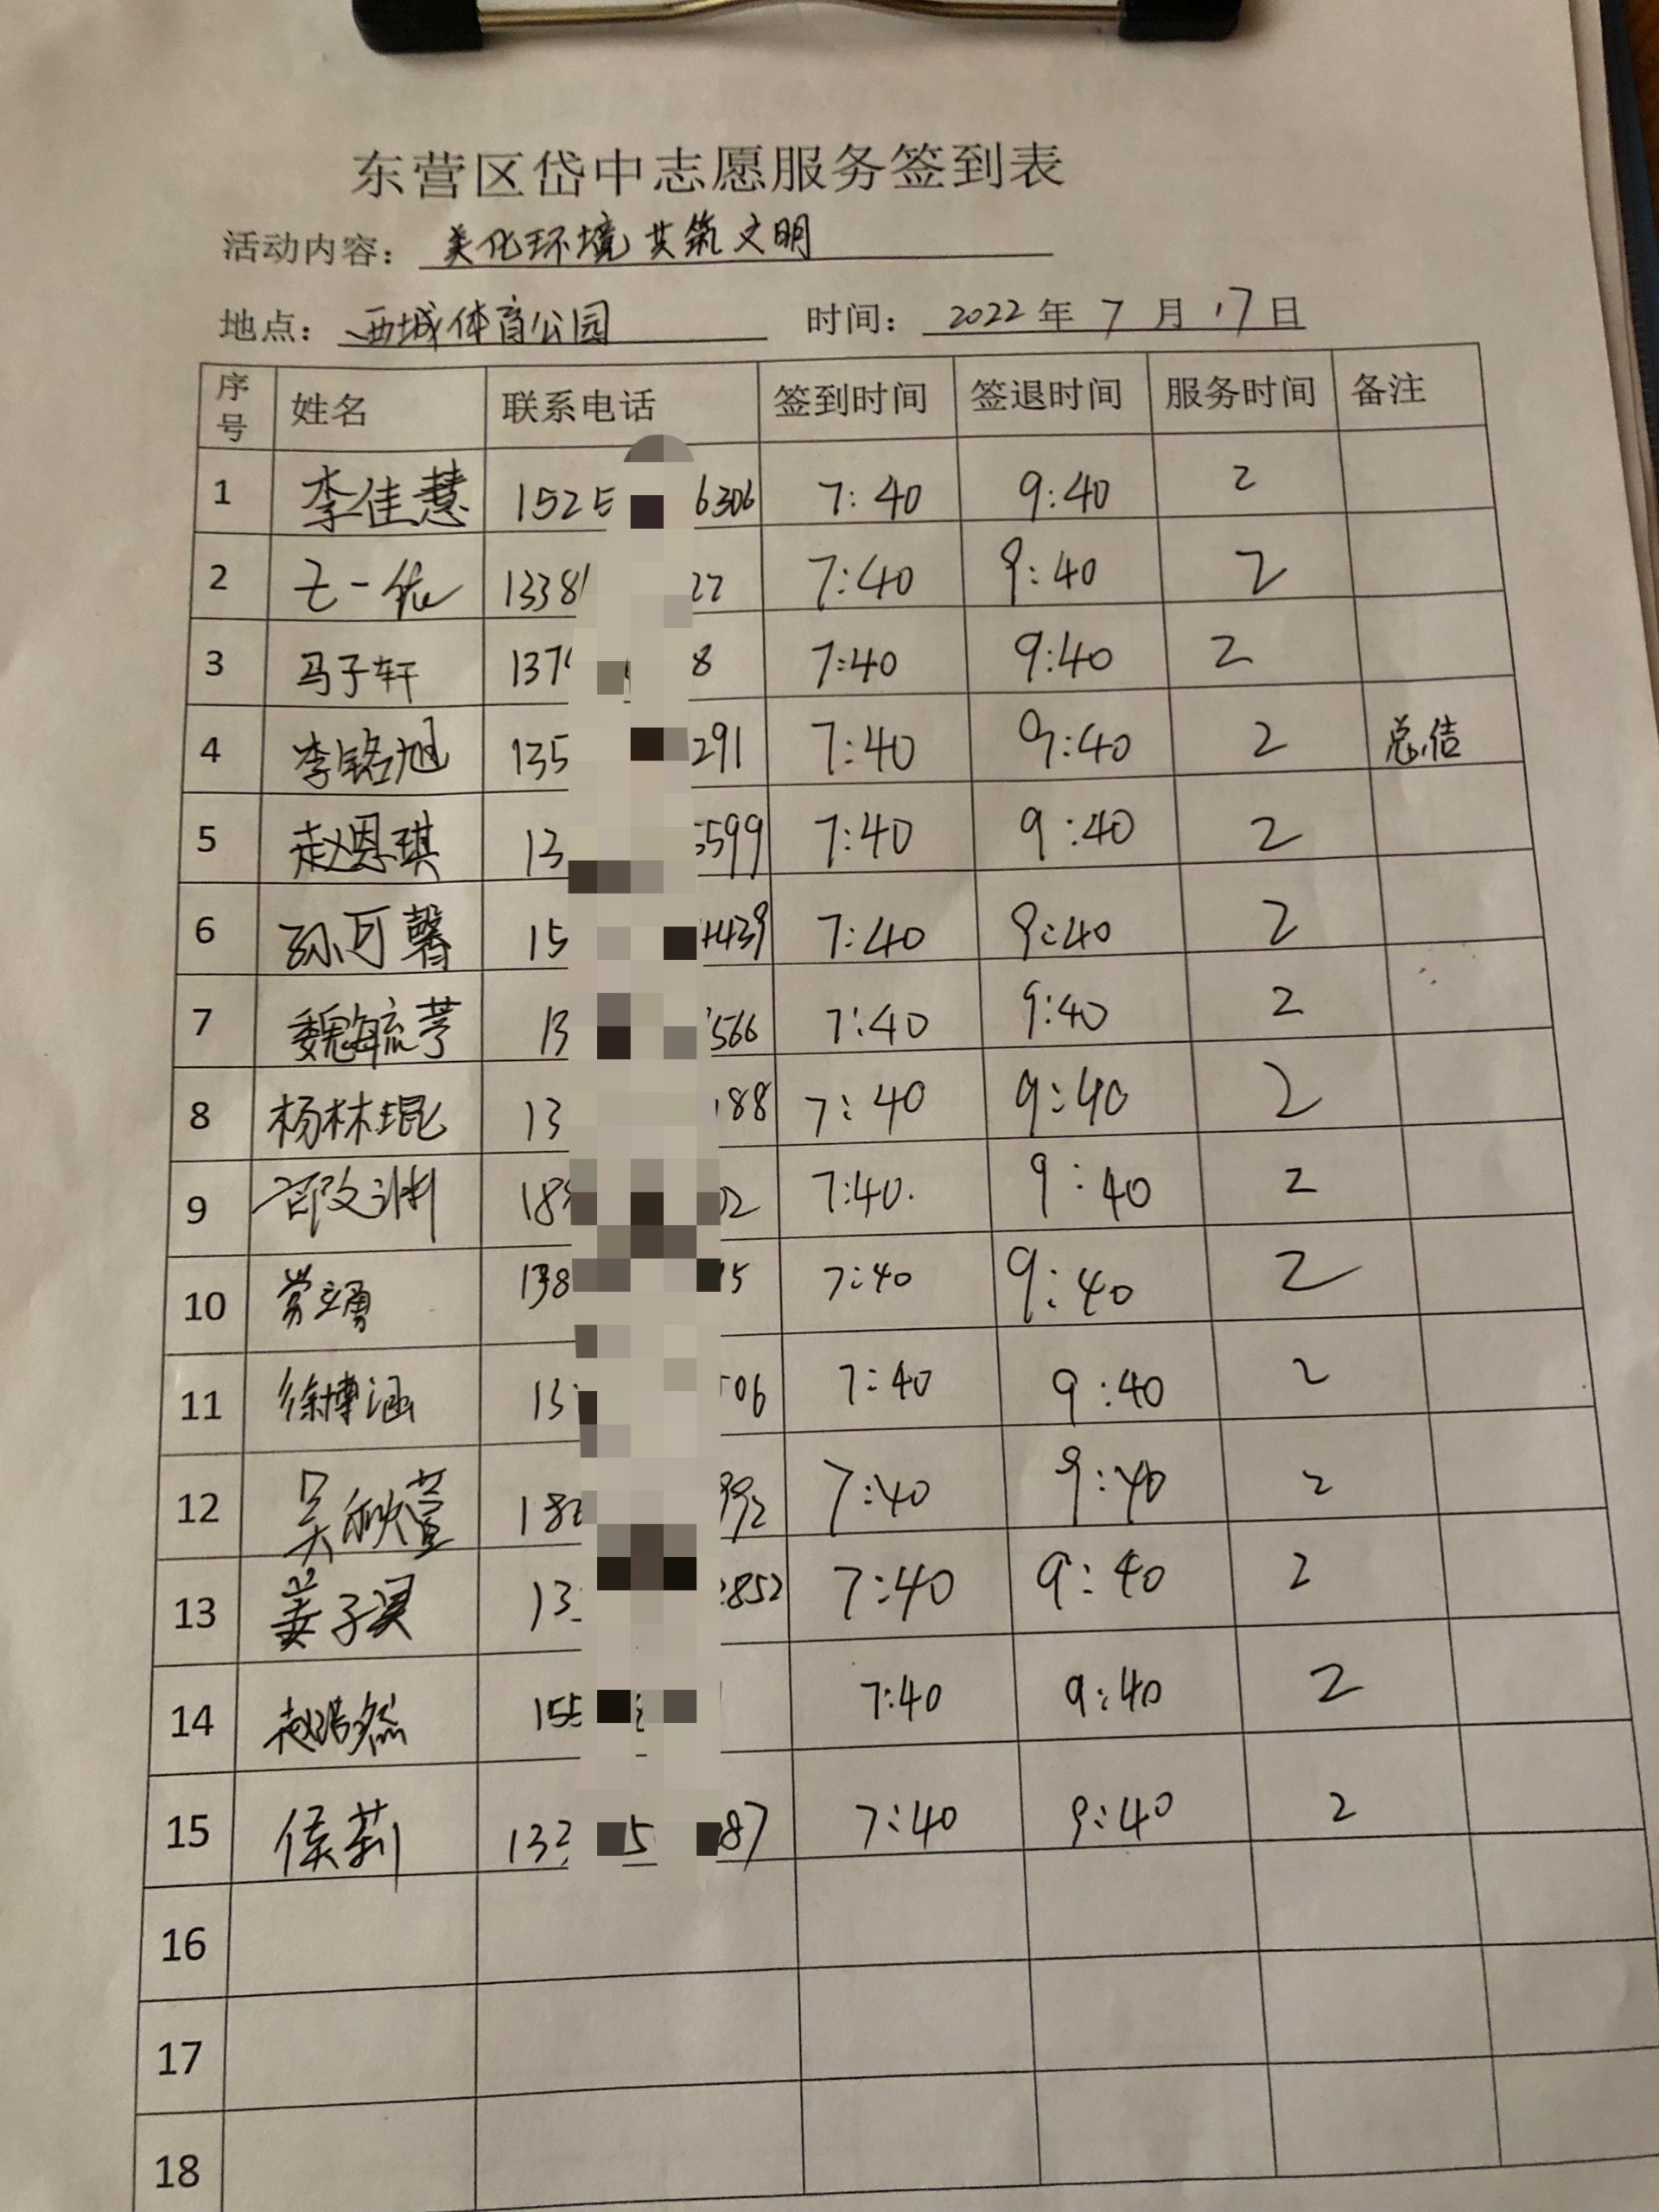 东营区岱中志愿服务签到表
活动内容： 美化环境 共筑文明
地点： 西城体育公园 时间： 2022年 7 月 17日
序号 姓名 联系电话 签到时间 签退时间 服务时间 备注
1 李佳慧 1525 6306 7:40 9:40 2
2 一依 1338 22 7:40 9:40 2
3 马子轩 137 8 7:40 9:40 2
4 李铭旭 135 291 7:40 9:40 2 总结
5 赵恩琪 13 599 7:40 9:40 2
6 孙可馨 15 439 7:40 9:40 2
7 魏毓芎 13 566 7:40 9:40 2
8 杨林琨 13 188 7:40 9:40 2
9 文渊 18 02 7:40. 9:40 2
10 138 15 7:40 9:40 2
11 徐博涵 13 06 7:40 9:40 2
12 吴欣萱 18 992 7:40 9:40 2
13 姜子淇 13 852 7:40 9:40 2
14 赵浩然 155 7:40 9:40 2
15 侯莉 133 5 87 7:40 9:40 2
16
17
18